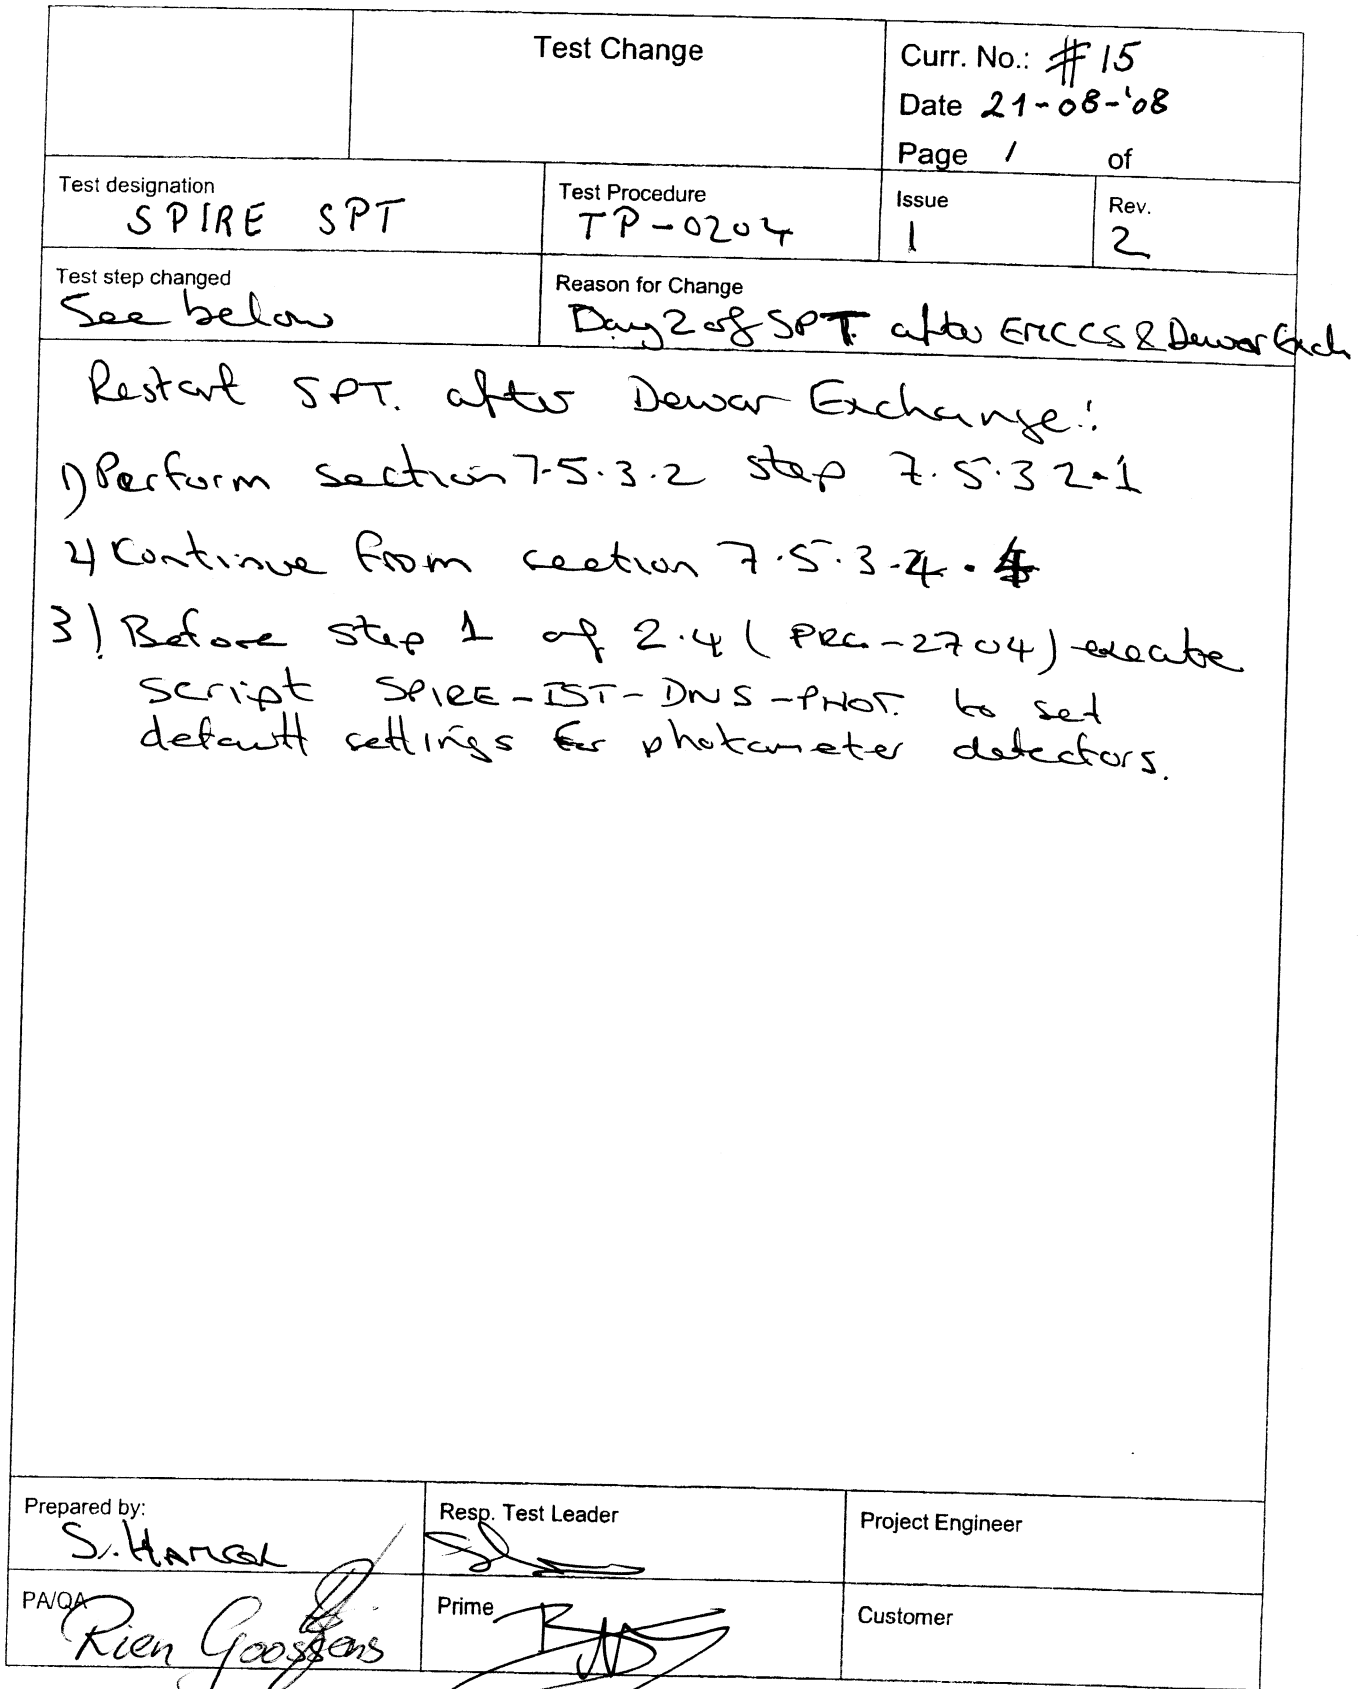 Test Change
Curr. No.: #15
Date 21-08-'08
Page 1 of
Test designation
SPIRE SPT
Test Procedure
TP-0204
Issue
1
Rev.
2
Test step changed
See below
Reason for Change
Day 2 of SPT. after EMCCS & Dewar Exch
Restart SPT. after Dewar Exchange:
1) Perform section 7.5.3.2 step 7.5.3 2.1
2) Continue from section 7.5.3.2.4
3) Before step 1 of 2.4 (PRC-2704) execute
script SPIRE-IST-DNS-PHOT. to set
default settings for photometer detectors.
Prepared by:
Resp. Test Leader
Project Engineer
PA/QA
Rien Goossens
Prime
Customer